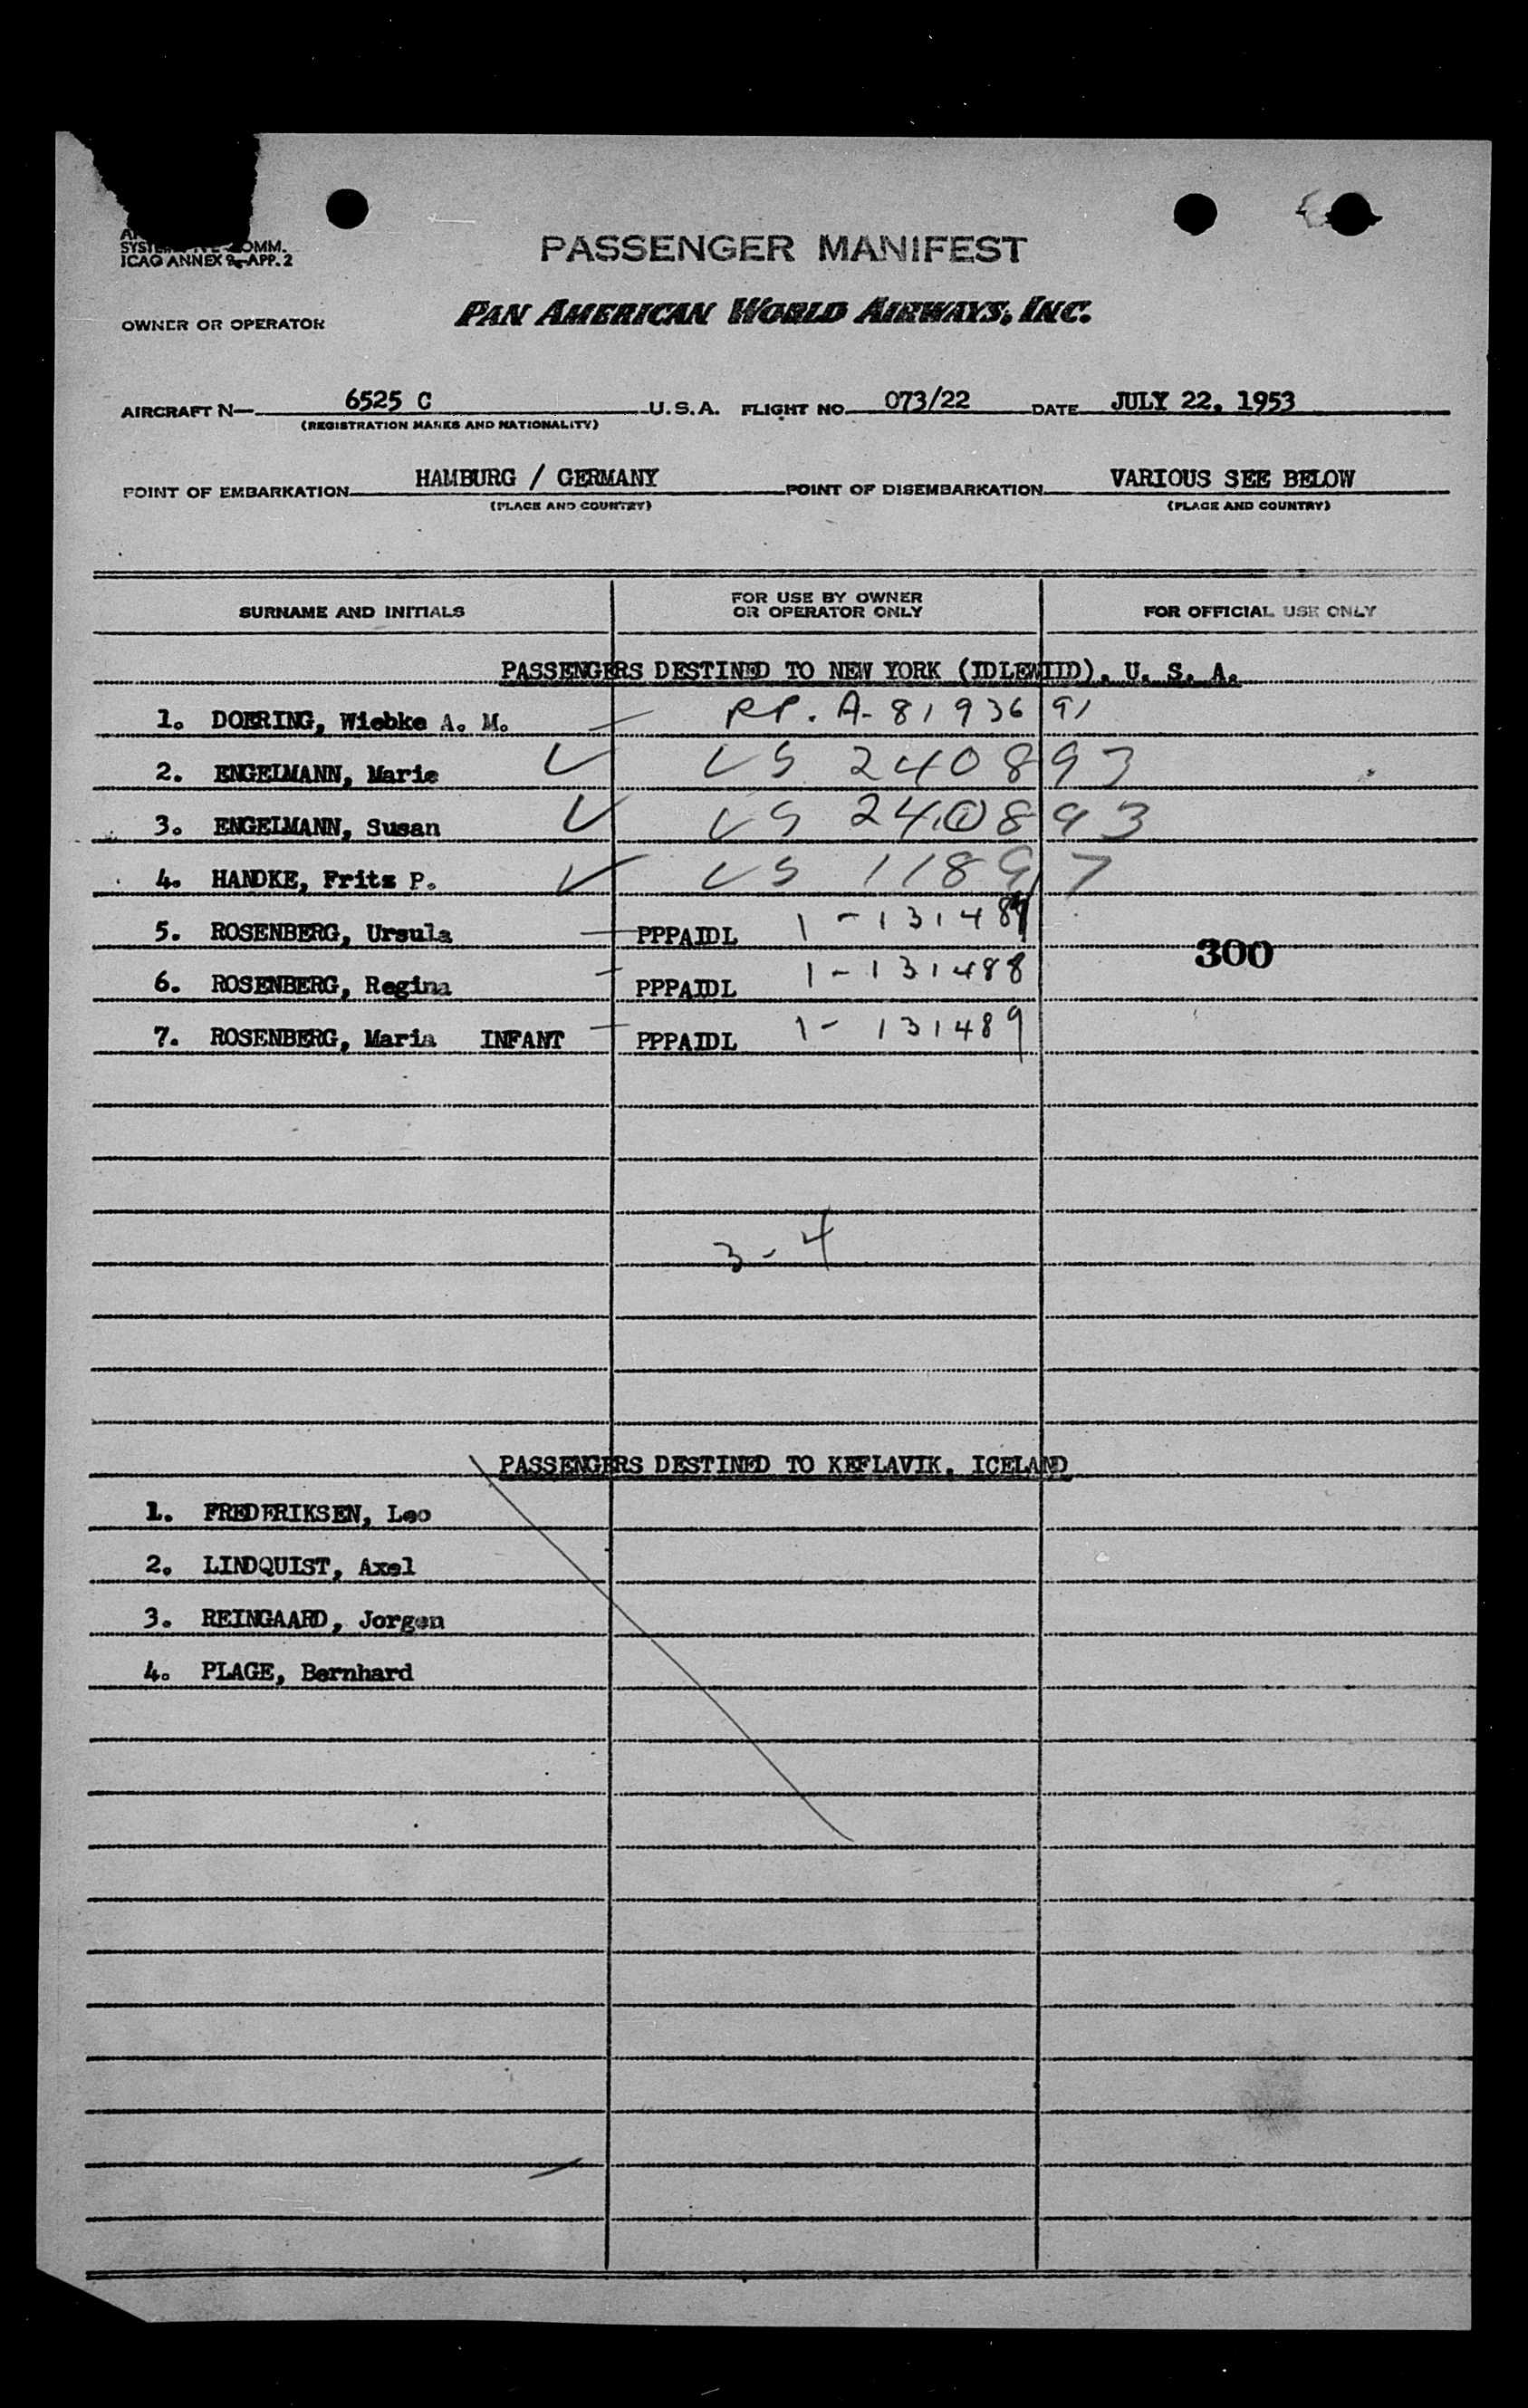 OMM.
ICAO ANNEX 9-APP. 2
PASSENGER MANIFEST
OWNER OR OPERATOR PAN AMERICAN WORLD AIRWAYS, INC.
AIRCRAFT N- 6525 C U.S.A. FLIGHT NO. 073/22 DATE JULY 22, 1953
(REGISTRATION MARKS AND NATIONALITY)
POINT OF EMBARKATION HAMBURG / GERMANY POINT OF DISEMBARKATION VARIOUS SEE BELOW
(PLACE AND COUNTRY) (PLACE AND COUNTRY)
SURNAME AND INITIALS FOR USE BY OWNER OR OPERATOR ONLY FOR OFFICIAL USE ONLY
PASSENGERS DESTINED TO NEW YORK (IDLEWIID), U. S. A.
1. DOERING, Wiebke A. M. RP. A-8193691
2. ENGELMANN, Marie US 240893
3. ENGELMANN, Susan US 240893
4. HANDKE, Fritz P. US 11897
5. ROSENBERG, Ursula PPPAIDL 1-131487
300
6. ROSENBERG, Regina PPPAIDL 1-131488
7. ROSENBERG, Maria INFANT PPPAIDL 1-131489
3-4
PASSENGERS DESTINED TO KEFLAVIK, ICELAND
1. FREDERIKSEN, Leo
2. LINDQUIST, Axel
3. REINGAARD, Jorgen
4. PLAGE, Bernhard